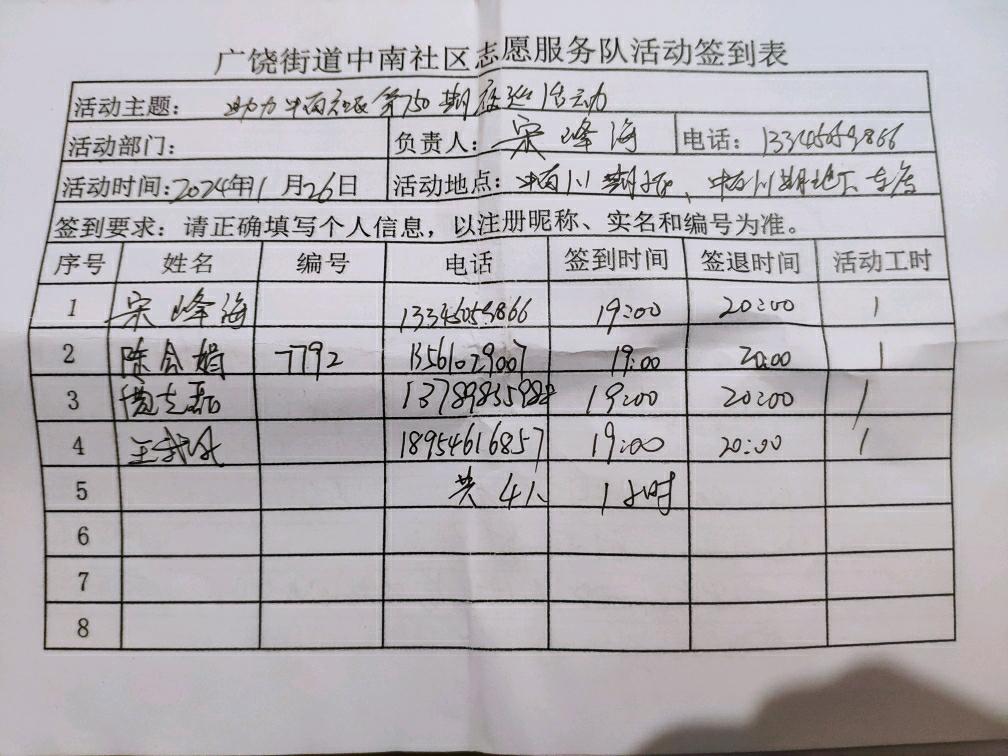 广饶街道中南社区志愿服务队活动签到表
活动主题： 助力中南社区第750期夜巡活动
活动部门： 负责人：宋峰海 电话：13345059866
活动时间：2024年1月26日 活动地点：中南1
签到要求：请正确填写个人信息，以注册昵称、实名和编号为准。
序号 姓名 编号 电话 签到时间 签退时间 活动工时
1 宋峰海 13345059866 19:00 20:00 1
2 陈会娟 7792 13561029007 19:00 20:00 1
3 19:00 20:00 1
4 18954616857 19:00 20:00 1
5 共4人 1小时
6
7
8